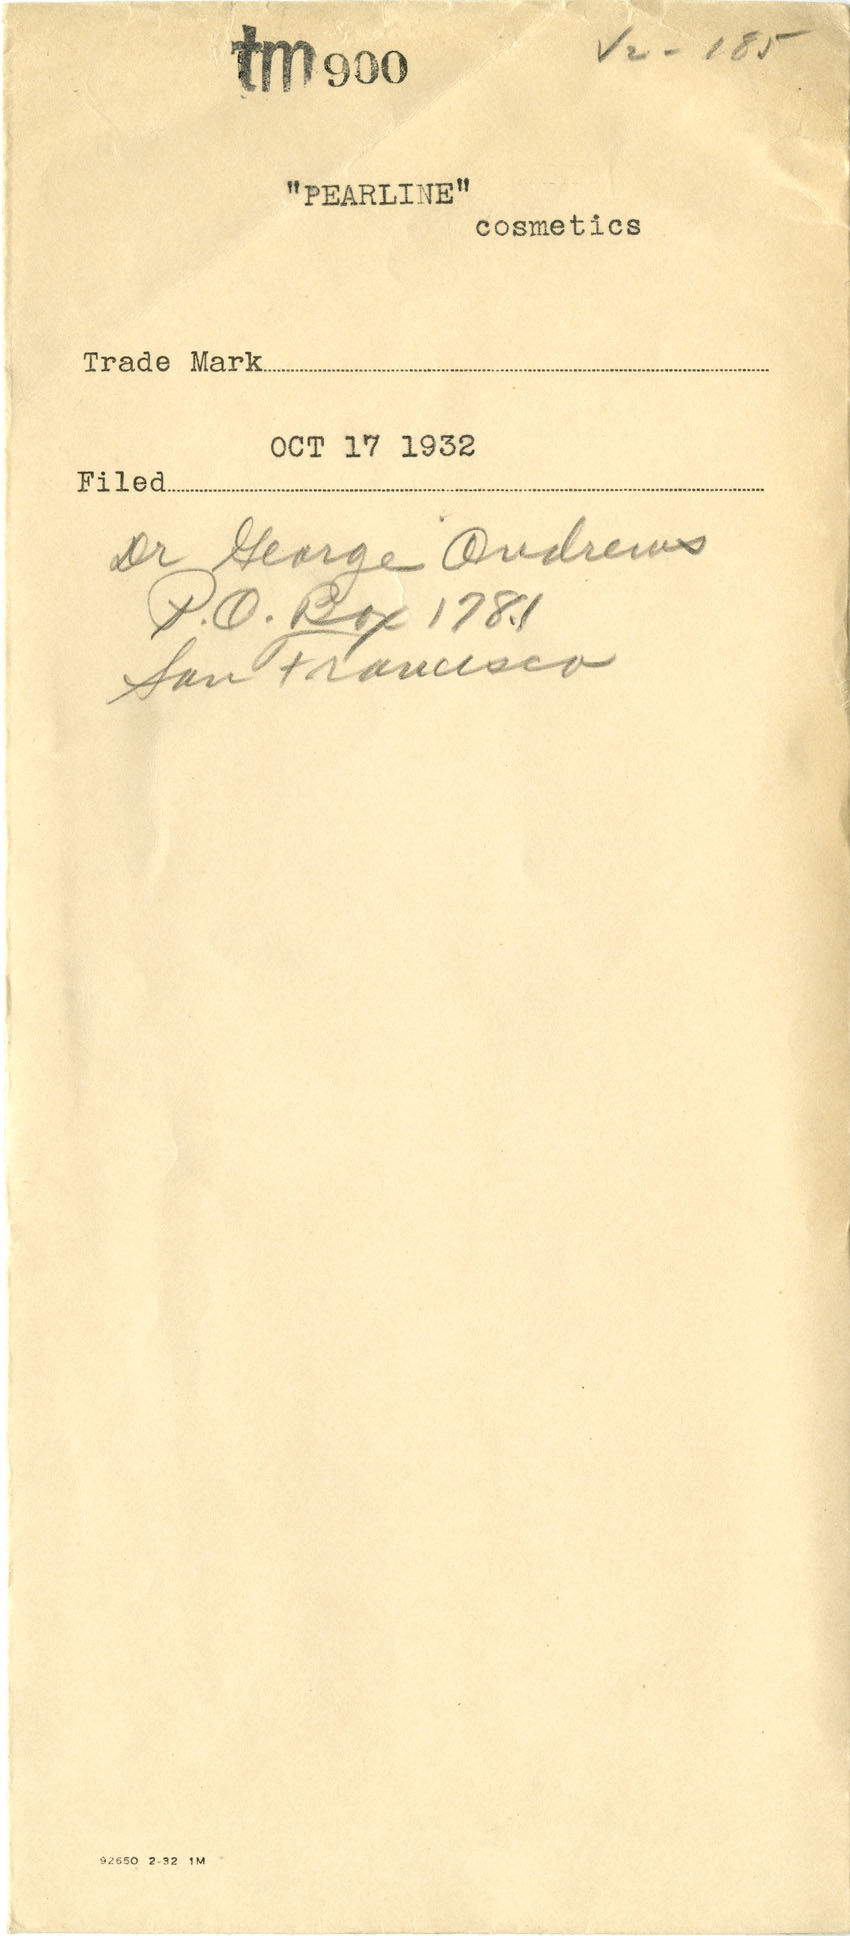 tm 900
V2 - 185
"PEARLINE"
cosmetics
Trade Mark
OCT 17 1932
Filed
Dr George Andrews
P.O. Box 1781
San Francisco
92650 2-32 1M